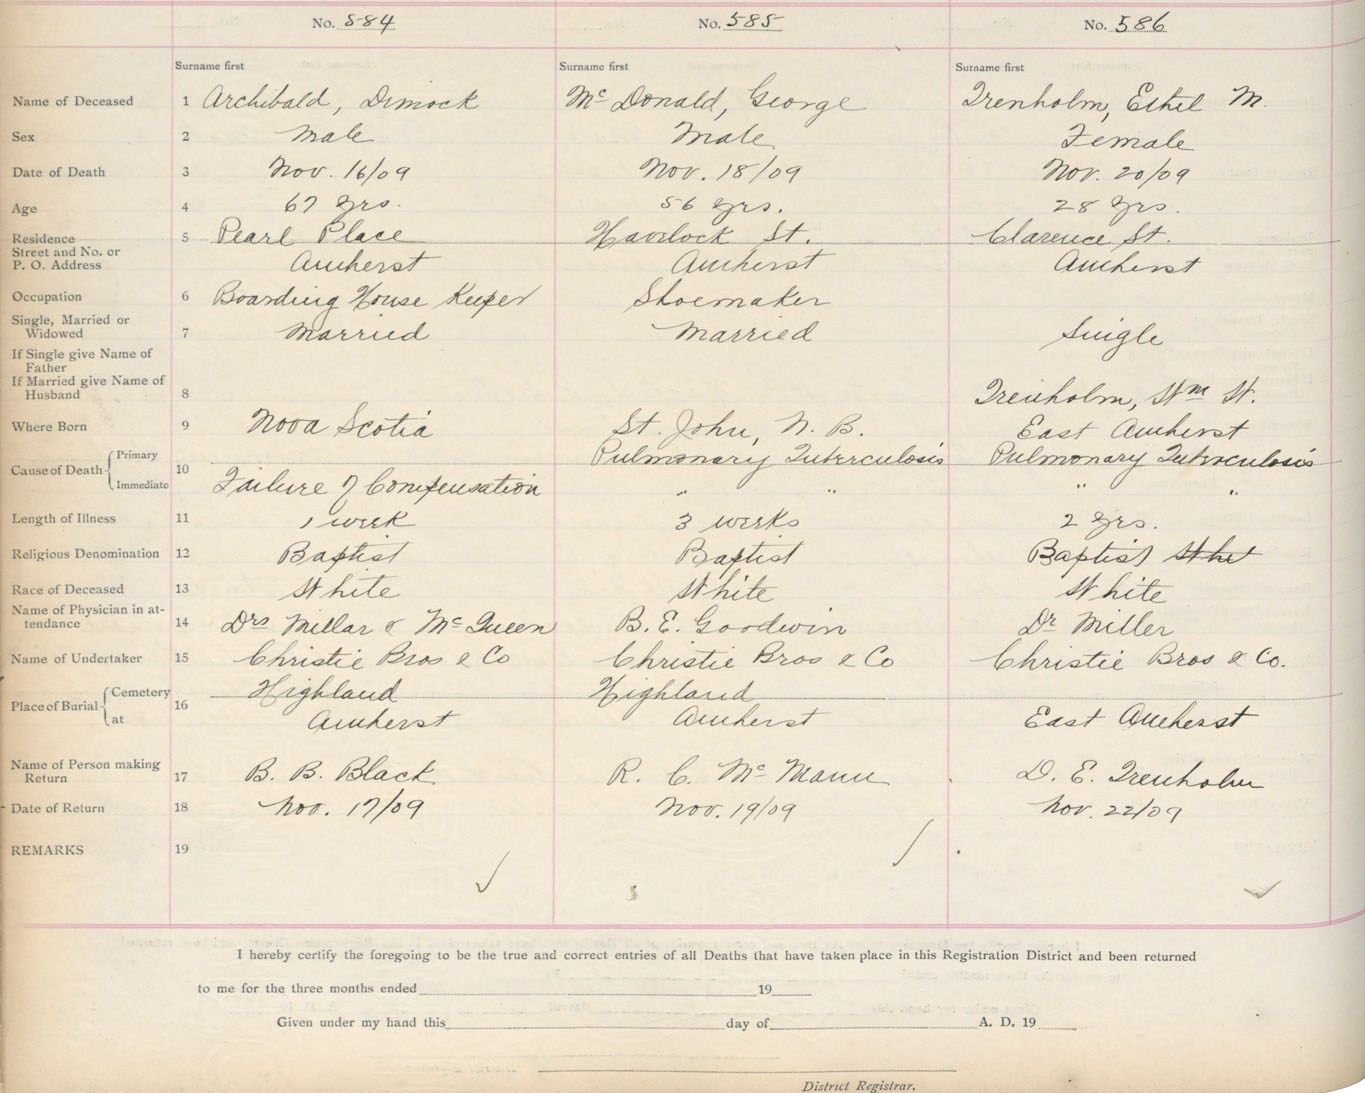 No. 584 No. 585 No. 586
Surname first Surname first Surname first
Name of Deceased 1 Archibald, Dimock McDonald, George Trenholm, Ethel M.
Sex 2 Male Male Female
Date of Death 3 Nov. 16/09 Nov. 18/09 Nov. 20/09
Age 4 67 yrs. 56 yrs. 28 yrs.
Residence 5 Pearl Place Havelock St. Clarence St.
Street and No. or
P. O. Address Amherst Amherst Amherst
Occupation 6 Boarding House Keeper Shoemaker
Single, Married or
Widowed 7 Married Married Single
If Single give Name of
Father
If Married give Name of
Husband 8 Trenholm, Wm W.
Where Born 9 Nova Scotia St. John, N. B. East Amherst
Cause of Death Primary 10 Pulmonary Tuberculosis Pulmonary Tuberculosis
Immediate Failure of Compensation " " " "
Length of Illness 11 1 week 3 weeks 2 yrs.
Religious Denomination 12 Baptist Baptist Baptist
Race of Deceased 13 White White White
Name of Physician in at-
tendance 14 Drs Millar & McQueen B. E. Goodwin Dr Miller
Name of Undertaker 15 Christie Bros & Co Christie Bros & Co Christie Bros & Co.
Place of Burial Cemetery 16 Highland Highland
at Amherst Amherst East Amherst
Name of Person making
Return 17 B. B. Black R. C. McMann D. E. Trenholm
Date of Return 18 Nov. 17/09 Nov. 19/09 Nov. 22/09
REMARKS 19
I hereby certify the foregoing to be the true and correct entries of all Deaths that have taken place in this Registration District and been returned
to me for the three months ended 19
Given under my hand this day of A. D. 19
District Registrar.